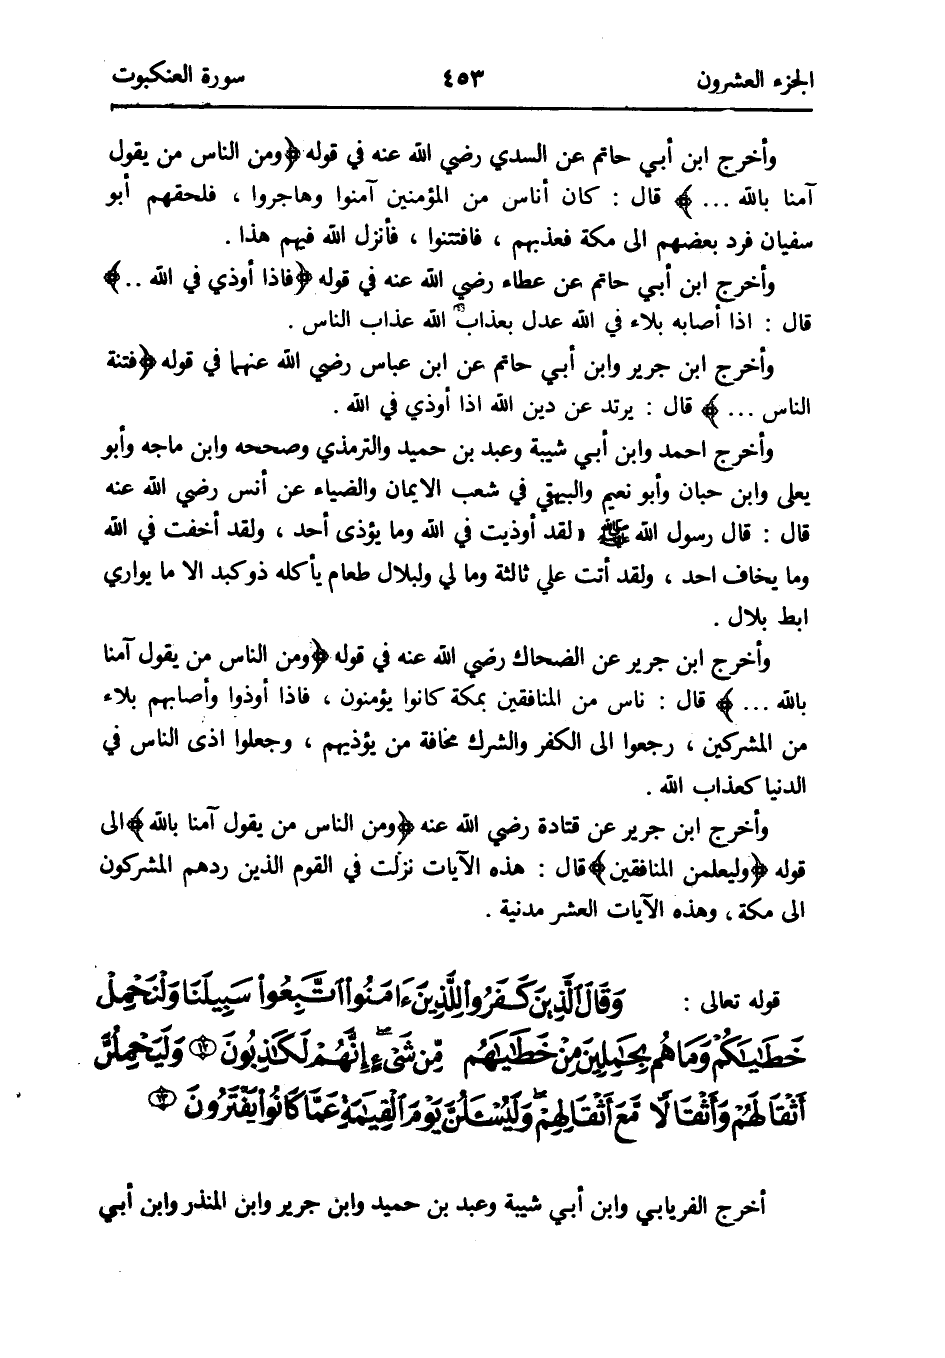 الجزء العشرون ٤٥٣ سورة العنكبوت
وأخرج ابن أبي حاتم عن السدي رضي الله عنه في قوله ﴿ومن الناس من يقول
آمنا بالله ... ﴾ قال : كان أناس من المؤمنين آمنوا وهاجروا ، فلحقهم أبو
سفيان فرد بعضهم الى مكة فعذبهم ، فافتتنوا ، فأنزل الله فيهم هذا .
وأخرج ابن أبي حاتم عن عطاء رضي الله عنه في قوله ﴿فاذا أوذي في الله ..﴾
قال : اذا أصابه بلاء في الله عدل بعذاب الله عذاب الناس .
وأخرج ابن جرير وابن أبي حاتم عن ابن عباس رضي الله عنهما في قوله ﴿فتنة
الناس ... ﴾ قال : يرتد عن دين الله اذا أوذي في الله .
وأخرج احمد وابن أبي شيبة وعبد بن حميد والترمذي وصححه وابن ماجه وأبو
يعلى وابن حبان وأبو نعيم والبيهقي في شعب الايمان والضياء عن أنس رضي الله عنه
قال : قال رسول الله ﷺ «لقد أوذيت في الله وما يؤذى أحد ، ولقد أخفت في الله
وما يخاف احد ، ولقد أتت علي ثالثة وما لي ولبلال طعام يأكله ذو كبد الا ما يواري
ابط بلال .
وأخرج ابن جرير عن الضحاك رضي الله عنه في قوله ﴿ومن الناس من يقول آمنا
بالله ... ﴾ قال : ناس من المنافقين بمكة كانوا يؤمنون ، فاذا أوذوا وأصابهم بلاء
من المشركين ، رجعوا الى الكفر والشرك مخافة من يؤذيهم ، وجعلوا اذى الناس في
الدنيا كعذاب الله .
وأخرج ابن جرير عن قتادة رضي الله عنه ﴿ومن الناس من يقول آمنا بالله﴾ الى
قوله ﴿وليعلمن المنافقين﴾ قال : هذه الآيات نزلت في القوم الذين ردهم المشركون
الى مكة ، وهذه الآيات العشر مدنية .
قوله تعالى : وَقَالَ ٱلَّذِينَ كَفَرُوا۟ لِلَّذِينَ ءَامَنُوا۟ ٱتَّبِعُوا۟ سَبِيلَنَا وَلْنَحْمِلْ
خَطَٰيَٰكُمْ وَمَا هُم بِحَٰمِلِينَ مِنْ خَطَٰيَٰهُم مِّن شَىْءٍ إِنَّهُمْ لَكَٰذِبُونَ ⑫ وَلَيَحْمِلُنَّ
أَثْقَالَهُمْ وَأَثْقَالًا مَّعَ أَثْقَالِهِمْ وَلَيُسْـَٔلُنَّ يَوْمَ ٱلْقِيَٰمَةِ عَمَّا كَانُوا۟ يَفْتَرُونَ ⑬
أخرج الفريابي وابن أبي شيبة وعبد بن حميد وابن جرير وابن المنذر وابن أبي